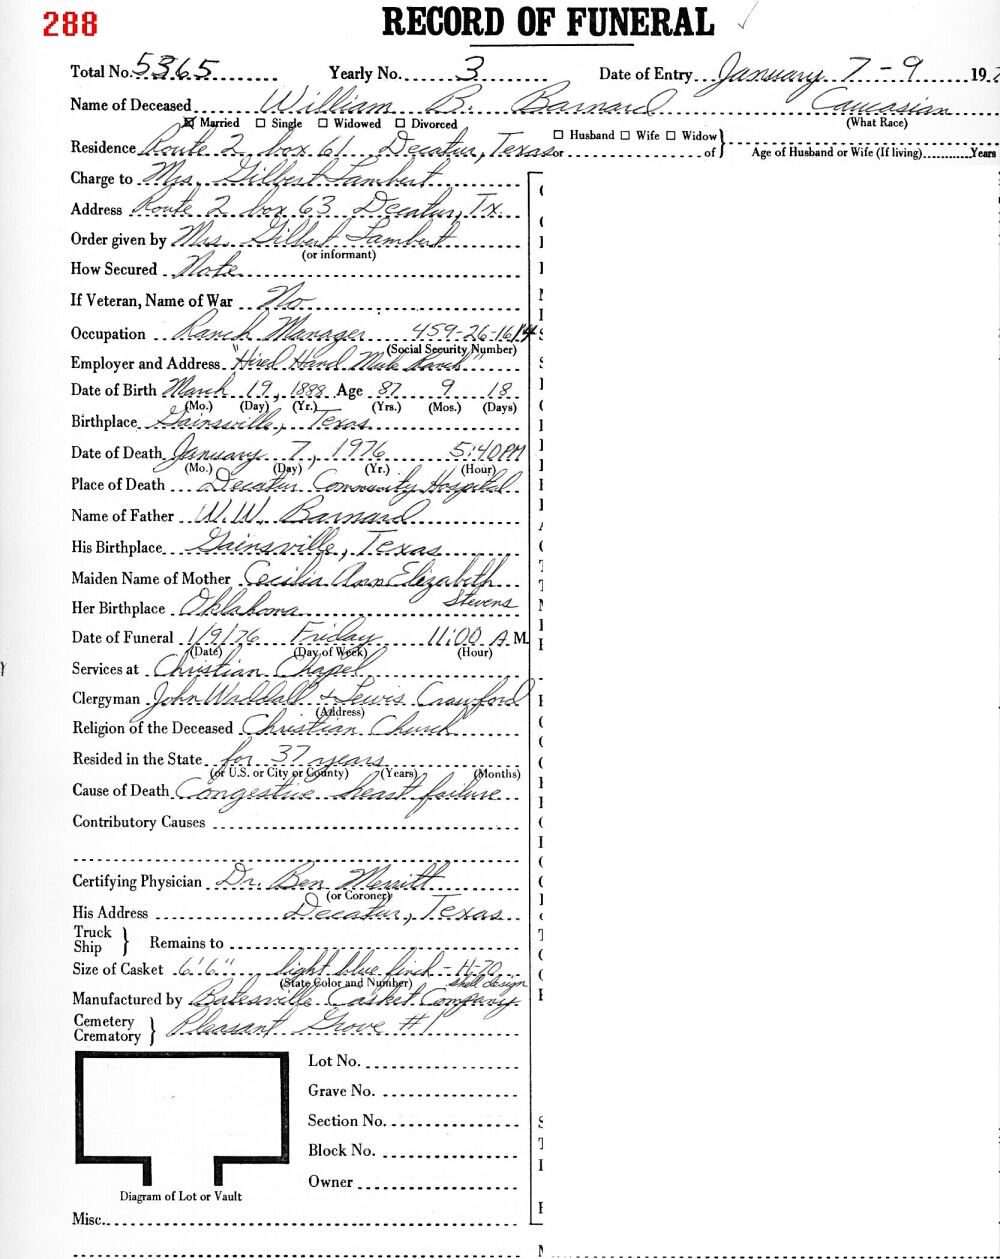 288
RECORD OF FUNERAL
Total No. 5365 Yearly No. 3 Date of Entry January 7-9 19
Name of Deceased William B. Barnard Caucasian
☒ Married ☐ Single ☐ Widowed ☐ Divorced (What Race)
Residence Route 2 box 61 Decatur, Texas or ☐ Husband ☐ Wife ☐ Widow } of Age of Husband or Wife (If living) Years
Charge to Mrs. Gilbert Lambert
Address Route 2 box 63 Decatur, Tx.
Order given by Mrs. Gilbert Lambert
(or informant)
How Secured Note
If Veteran, Name of War No
Occupation Ranch Manager 459-26-1614
(Social Security Number)
Employer and Address "Hired Hand Mule Ranch"
Date of Birth March 19, 1888 Age 87 9 18
(Mo.) (Day) (Yr.) (Yrs.) (Mos.) (Days)
Birthplace Gainsville, Texas
Date of Death January 7, 1976 5:40 PM
(Mo.) (Day) (Yr.) (Hour)
Place of Death Decatur Community Hospital
Name of Father W.W. Barnard
His Birthplace Gainsville, Texas
Maiden Name of Mother Cecilia Ann Elizabeth
Stevens
Her Birthplace Oklahoma
Date of Funeral 1/9/76 Friday 11:00 A M.
(Date) (Day of Week) (Hour)
Services at Christian Chapel
Clergyman John Waddall & Lewis Crawford
(Address)
Religion of the Deceased Christian Church
Resided in the State for 37 years
(or U.S. or City or County) (Years) (Months)
Cause of Death Congestive heart failure
Contributory Causes
Certifying Physician Dr. Ben Merritt
(or Coroner)
His Address Decatur, Texas
Truck
Ship } Remains to
Size of Casket 6'6" light blue finish - H-70
(State Color and Number) shell design
Manufactured by Batesville Casket Company
Cemetery
Crematory } Pleasant Grove #1
Lot No.
Grave No.
Section No.
Block No.
Owner
Diagram of Lot or Vault
Misc.